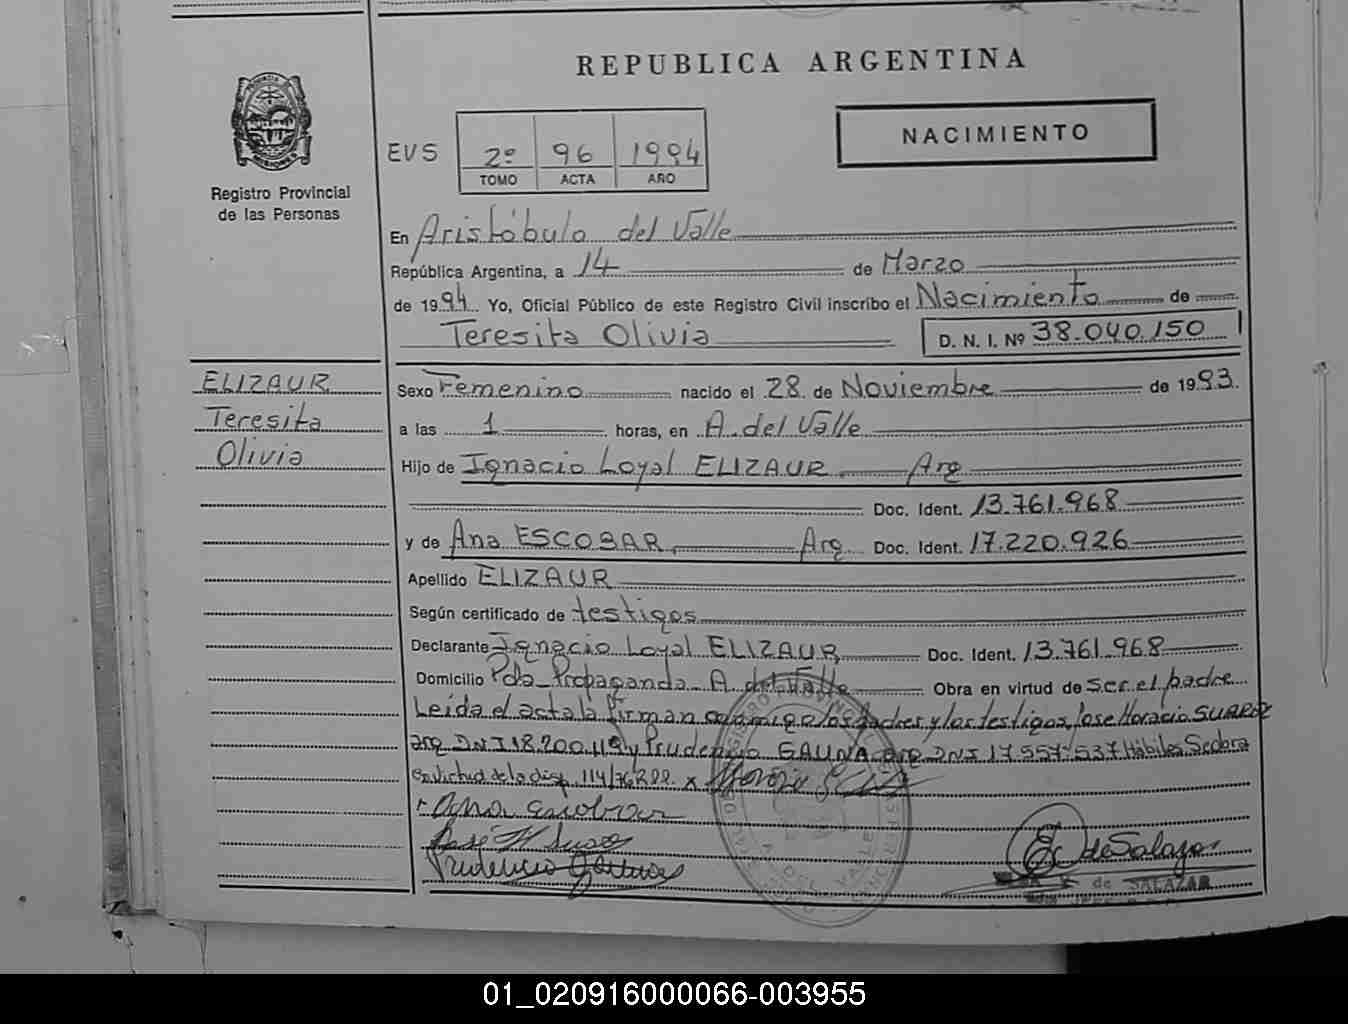 REPUBLICA ARGENTINA
NACIMIENTO
EVS 2º 96 1994
TOMO ACTA AÑO
Registro Provincial
de las Personas
En Aristóbulo del Valle
República Argentina, a 14 de Marzo
de 1994 Yo, Oficial Público de este Registro Civil inscribo el Nacimiento de
Teresita Olivia D. N. I. Nº 38.040.150
ELIZAUR
Teresita
Olivia
Sexo Femenino nacido el 28 de Noviembre de 1993.
a las 1 horas, en A. del Valle
Hijo de Ignacio Loyal ELIZAUR Arg
Doc. Ident. 13.761.968
y de Ana ESCOBAR, Arg. Doc. Ident. 17.220.926
Apellido ELIZAUR
Según certificado de testigos
Declarante Ignacio Loyal ELIZAUR, Doc. Ident. 13.761.968
Domicilio Pda Propaganda A. del Valle Obra en virtud de ser el padre
Leída el acta la firman conmigo los padres y los testigos Jose Horacio SUAREZ
arg DNI 18.700.119 y Prudencio GAUNA arg DNI 17.557.537 Hábiles. Se obra
en virtud de la disp. 114/76 x
Ana Escobar
José H Suarez
Prudencio Gauna
de Salazar
de SALAZAR
A. DEL VALLE
01_020916000066-003955